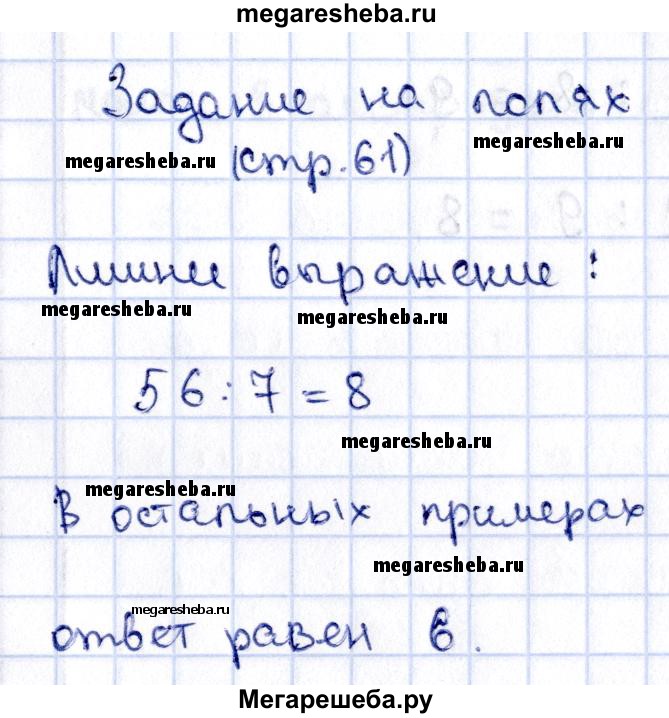 megaresheba.ru
Задание на полях
megaresheba.ru
megaresheba.ru
(стр. 61)
Лишнее выражение:
megaresheba.ru
megaresheba.ru
56 : 7 = 8
megaresheba.ru
megaresheba.ru
В остальных примерах
megaresheba.ru
megaresheba.ru
ответ равен 6.
Мегарешеба.ру